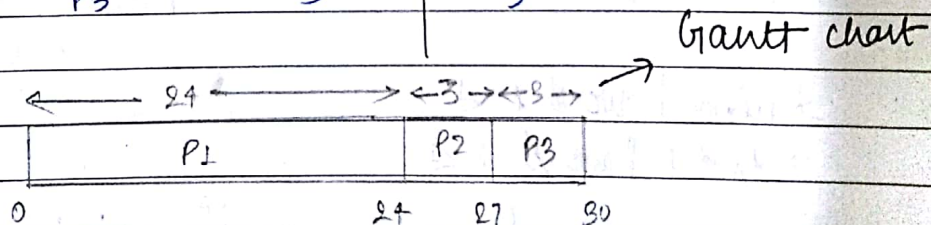 P3
Gantt chart
24 3 3
P1 P2 P3
0 24 27 30